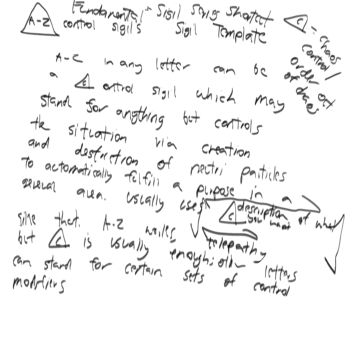 A-Z Fundamental - Sigil Sorig Shortcut C - chaos
control sigils Sigil Template control/
order out
of chaos
A-Z in any letter can be
a C ontrol sigil which may
stand for anything but controls
the situation via creation
and destruction of neutri particles
to automatically fulfill a purpose in a
general area. usually uses
C description of what
you want
telepathy
Since that. A-Z works
but C is usually enough; other letters
can stand for certain sets of control
modifiers